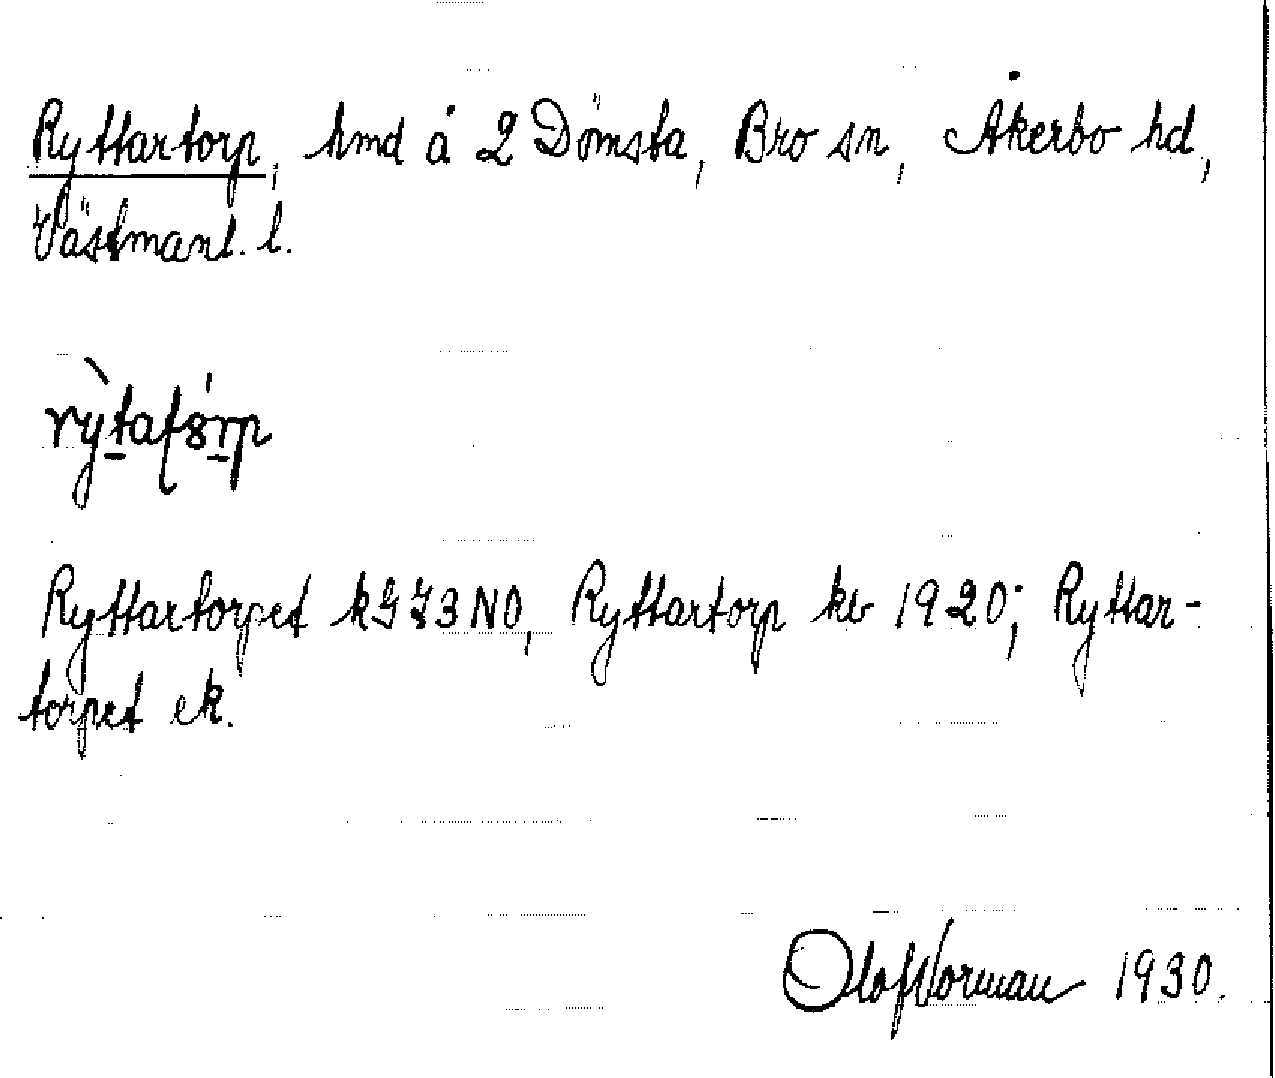 Ryttartorp, hmd å 2 Dömsta, Bro sn, Åkerbo hd,
Västmanl. l.
Ryttartorpet kGZ3NO, Ryttartorp kb 1920; Ryttar-
torpet ek.
Olof Norman 1930.